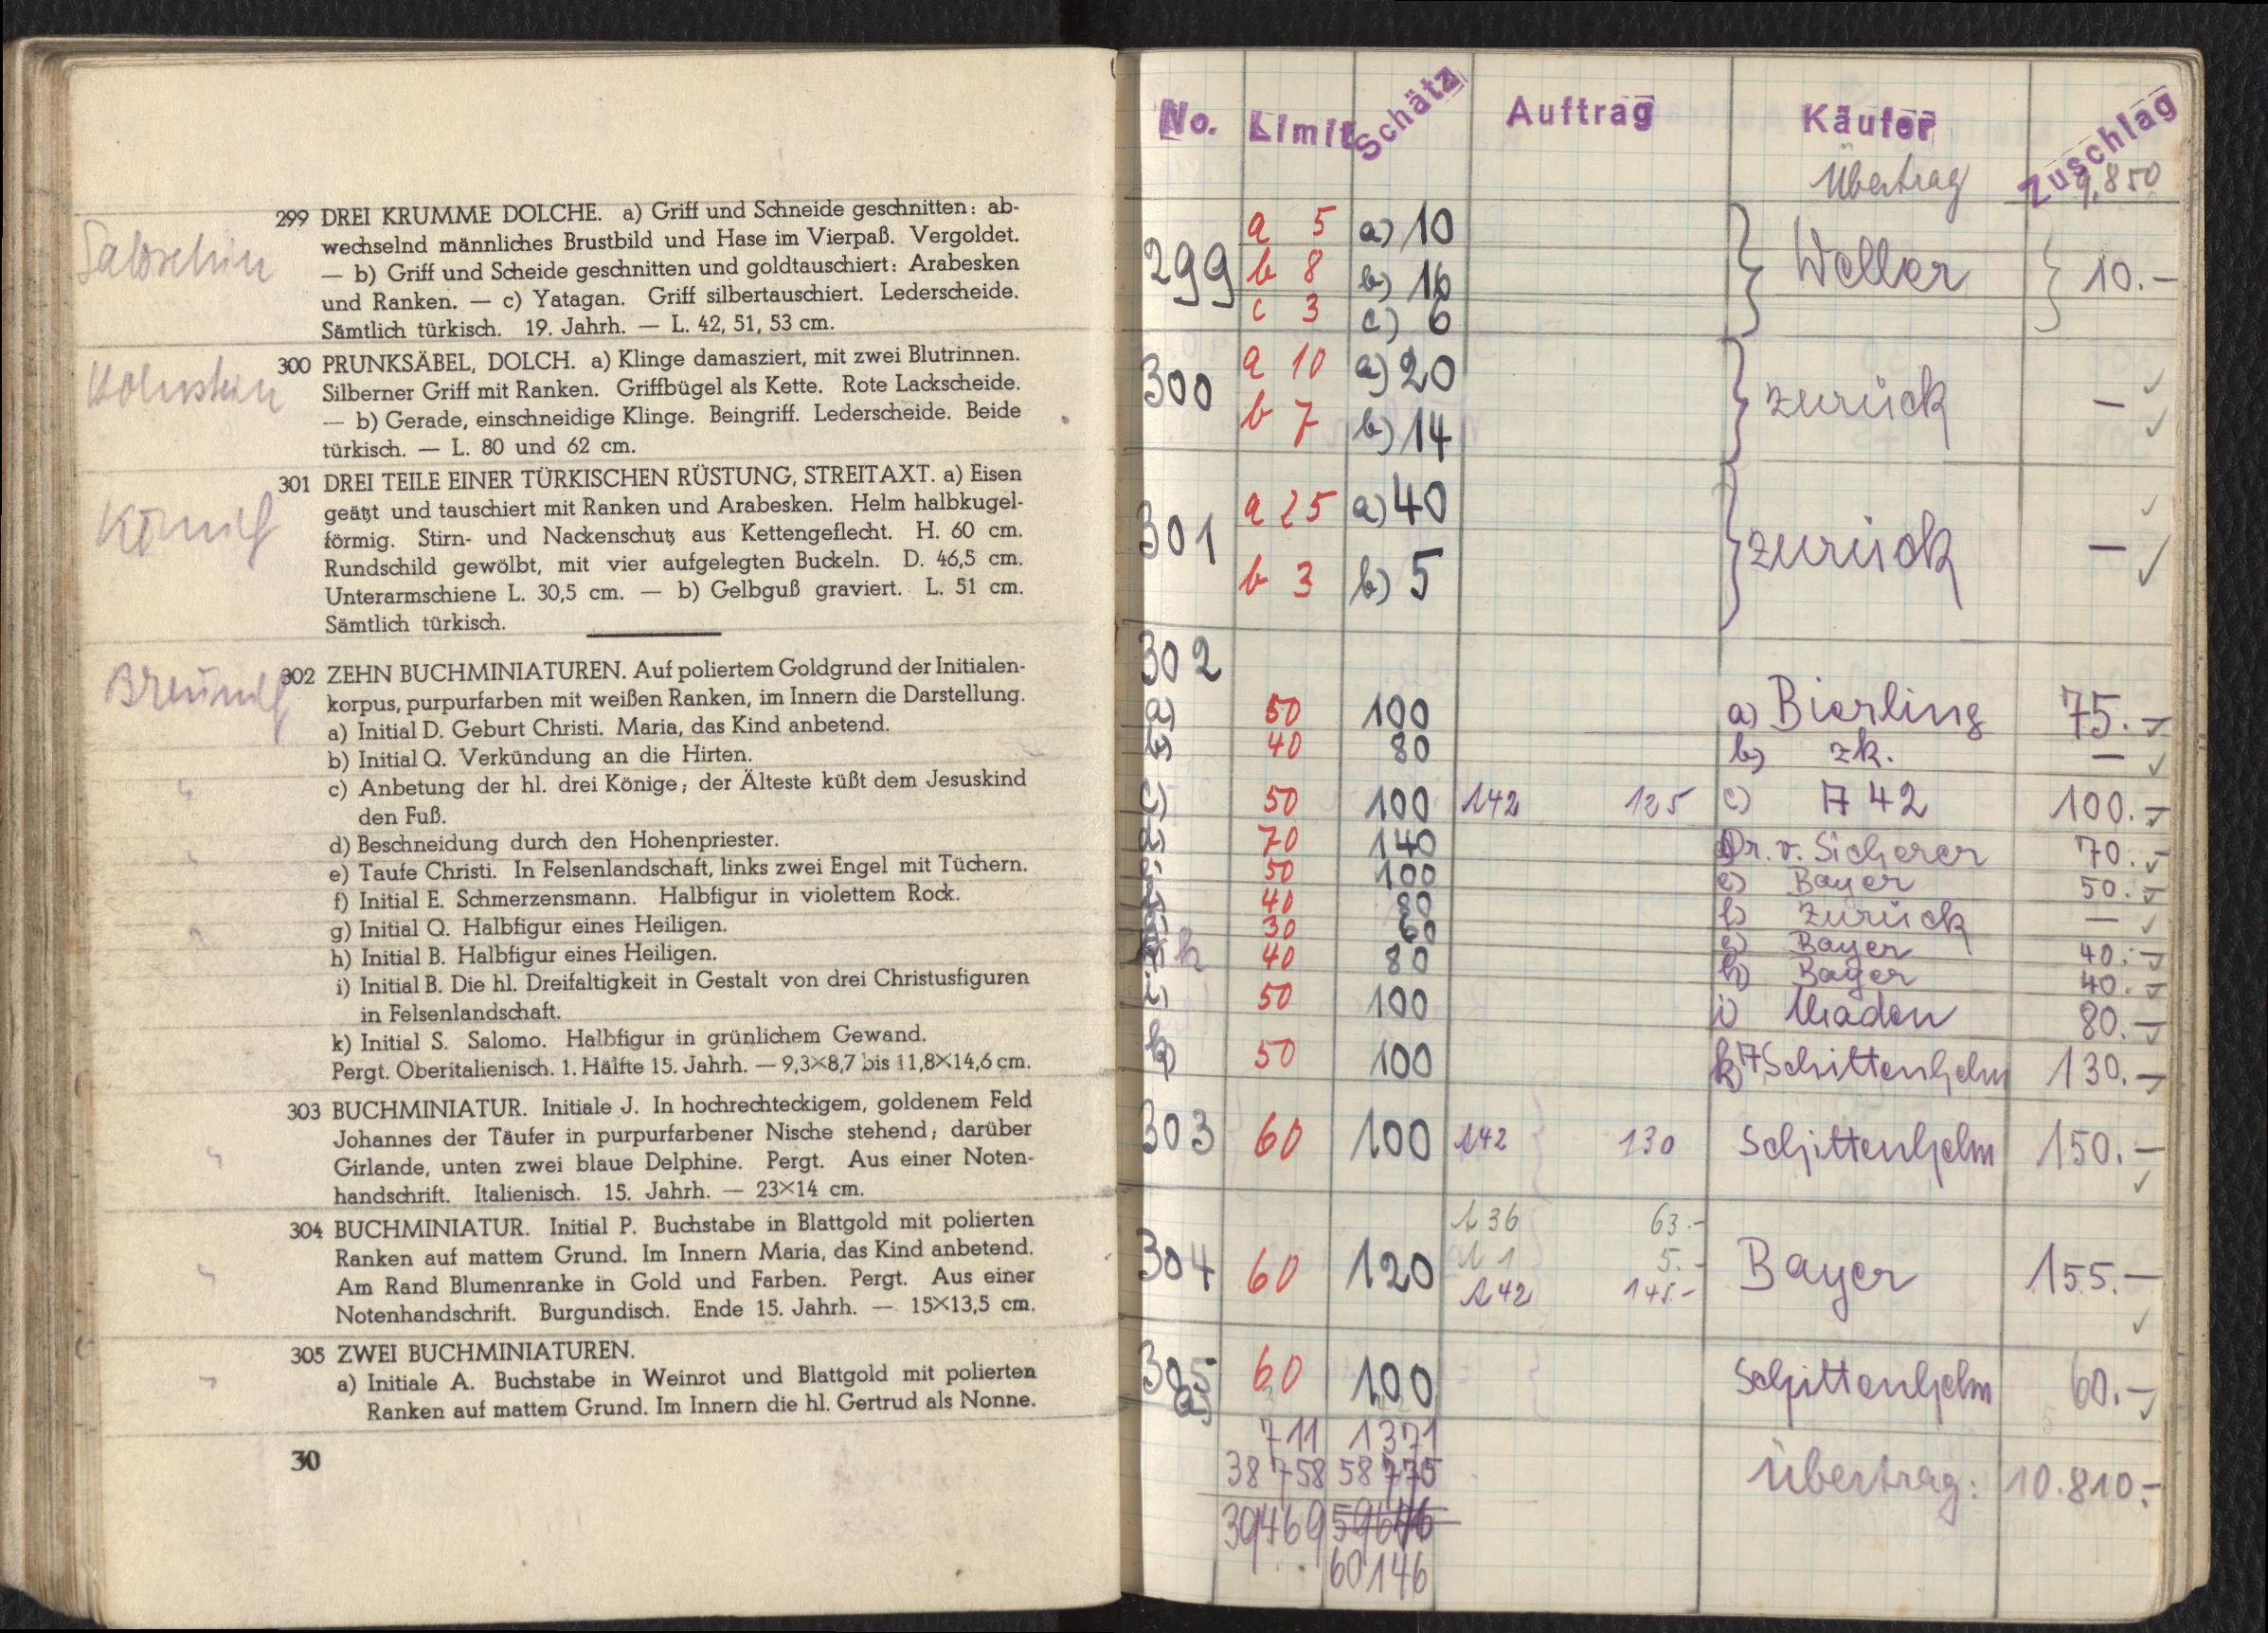 299 DREI KRUMME DOLCHE. a) Griff und Schneide geschnitten: ab-
wechselnd männliches Brustbild und Hase im Vierpaß. Vergoldet.
— b) Griff und Scheide geschnitten und goldtauschiert: Arabesken
und Ranken. — c) Yatagan. Griff silbertauschiert. Lederscheide.
Sämtlich türkisch. 19. Jahrh. — L. 42, 51, 53 cm.
300 PRUNKSÄBEL, DOLCH. a) Klinge damasziert, mit zwei Blutrinnen.
Silberner Griff mit Ranken. Griffbügel als Kette. Rote Lackscheide.
— b) Gerade, einschneidige Klinge. Beingriff. Lederscheide. Beide
türkisch. — L. 80 und 62 cm.
König
301 DREI TEILE EINER TÜRKISCHEN RÜSTUNG, STREITAXT. a) Eisen
geätzt und tauschiert mit Ranken und Arabesken. Helm halbkugel-
förmig. Stirn- und Nackenschutz aus Kettengeflecht. H. 60 cm.
Rundschild gewölbt, mit vier aufgelegten Buckeln. D. 46,5 cm.
Unterarmschiene L. 30,5 cm. — b) Gelbguß graviert. L. 51 cm.
Sämtlich türkisch.
302 ZEHN BUCHMINIATUREN. Auf poliertem Goldgrund der Initialen-
korpus, purpurfarben mit weißen Ranken, im Innern die Darstellung.
a) Initial D. Geburt Christi. Maria, das Kind anbetend.
b) Initial Q. Verkündung an die Hirten.
c) Anbetung der hl. drei Könige; der Älteste küßt dem Jesuskind
den Fuß.
d) Beschneidung durch den Hohenpriester.
e) Taufe Christi. In Felsenlandschaft, links zwei Engel mit Tüchern.
f) Initial E. Schmerzensmann. Halbfigur in violettem Rock.
g) Initial Q. Halbfigur eines Heiligen.
h) Initial B. Halbfigur eines Heiligen.
i) Initial B. Die hl. Dreifaltigkeit in Gestalt von drei Christusfiguren
in Felsenlandschaft.
k) Initial S. Salomo. Halbfigur in grünlichem Gewand.
Pergt. Oberitalienisch. 1. Hälfte 15. Jahrh. — 9,3×8,7 bis 11,8×14,6 cm.
303 BUCHMINIATUR. Initiale J. In hochrechteckigem, goldenem Feld
Johannes der Täufer in purpurfarbener Nische stehend; darüber
Girlande, unten zwei blaue Delphine. Pergt. Aus einer Noten-
handschrift. Italienisch. 15. Jahrh. — 23×14 cm.
304 BUCHMINIATUR. Initial P. Buchstabe in Blattgold mit polierten
Ranken auf mattem Grund. Im Innern Maria, das Kind anbetend.
Am Rand Blumenranke in Gold und Farben. Pergt. Aus einer
Notenhandschrift. Burgundisch. Ende 15. Jahrh. — 15×13,5 cm.
305 ZWEI BUCHMINIATUREN.
a) Initiale A. Buchstabe in Weinrot und Blattgold mit polierten
Ranken auf mattem Grund. Im Innern die hl. Gertrud als Nonne.
30
No. Limit Schätz Auftrag Käufer Zuschlag
Übertrag 9,850
299 a 5 a) 10 Weller 10.-
b 8 b) 16
c 3 c) 6
300 a 10 a) 20 zurück —
b 7 b) 14
301 a 25 a) 40 zurück —
b 3 b) 5
302
a) 50 100 a) Bierling 75.-
40 80 b) zk. —
c) 50 100 142 125 c) A 42 100.-
70 140 Dr. v. Sicherer 70.-
50 100 e) Bayer 50.-
40 80 zurück —
30 60 g) Bayer 40.-
h 40 80 h) Bayer 40.-
50 100 i) 80.-
k) 50 100 k) Schittenhelm 130.-
303 60 100 142 130 Schittenhelm 150.-
136 63.-
304 60 120 1 5.- Bayer 155.-
142 145.-
305 a) 60 100 Schittenhelm 60.-
711 1371
38758 58775 Übertrag: 10.810.-
39469
60146